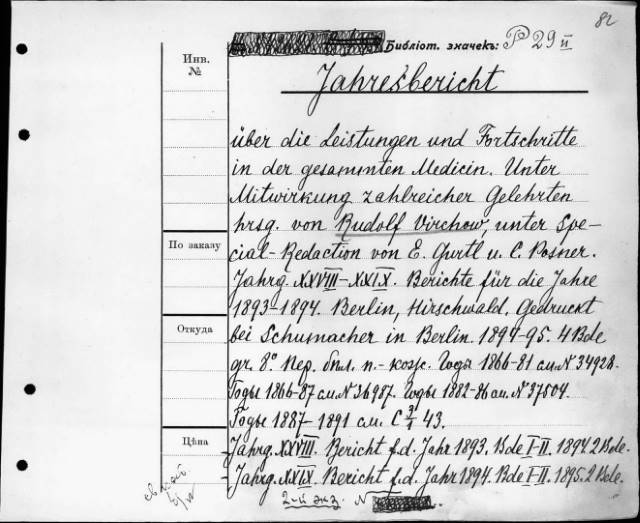 82
Библіот. значекъ: P 29 II
Инв. №
Jahresbericht
über die Leistungen und Fortschritte
in der gesammten Medicin. Unter
Mitwirkung zahlreicher Gelehrten
hrsg. von Rudolf Virchow, unter Spe-
По заказу
cial-Redaction von E. Gurlt u. C. Posner.
Jahrg. XXVIII–XXIX. Berichte für die Jahre
1893–1894. Berlin, Hirschwald. Gedruckt
Откуда
bei Schumacher in Berlin. 1894-95. 4 Bde
gr. 8° Пер. бпл. п.- козс. Годы 1866-81 см. N 34928.
Годы 1866-87 см. N 36987. Годы 1882-86 см. N 37504.
Годы 1887-1891 см. C 3/1 43.
Цѣна
Jahrg. XXVIII. Bericht f. d. Jahr 1893. Bde I-II. 1894. 2 Bde.
Jahrg. XXIX. Bericht f. d. Jahr 1894. Bde I-II. 1895. 2 Bde.
2-й экз. N